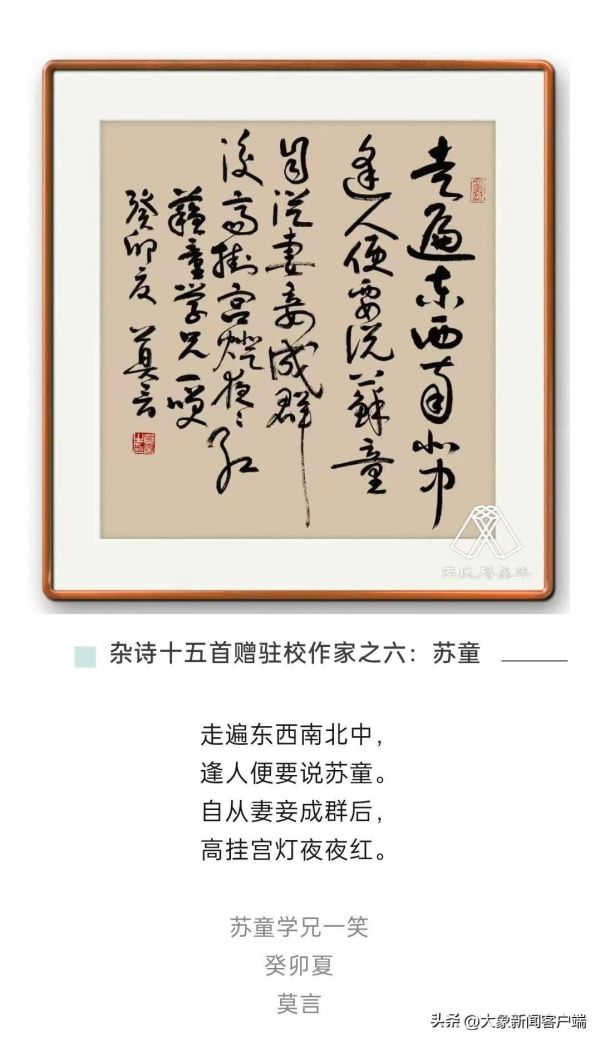 走遍东西南北中
逢人便要说蘇童
自從妻妾成群
後高掛宫燈夜〻红
蘇童学兄一哂
癸卯夏 莫言
两块砖墨讯
杂诗十五首赠驻校作家之六：苏童
走遍东西南北中，
逢人便要说苏童。
自从妻妾成群后，
高挂宫灯夜夜红。
苏童学兄一笑
癸卯夏
莫言
头条 @大象新闻客户端